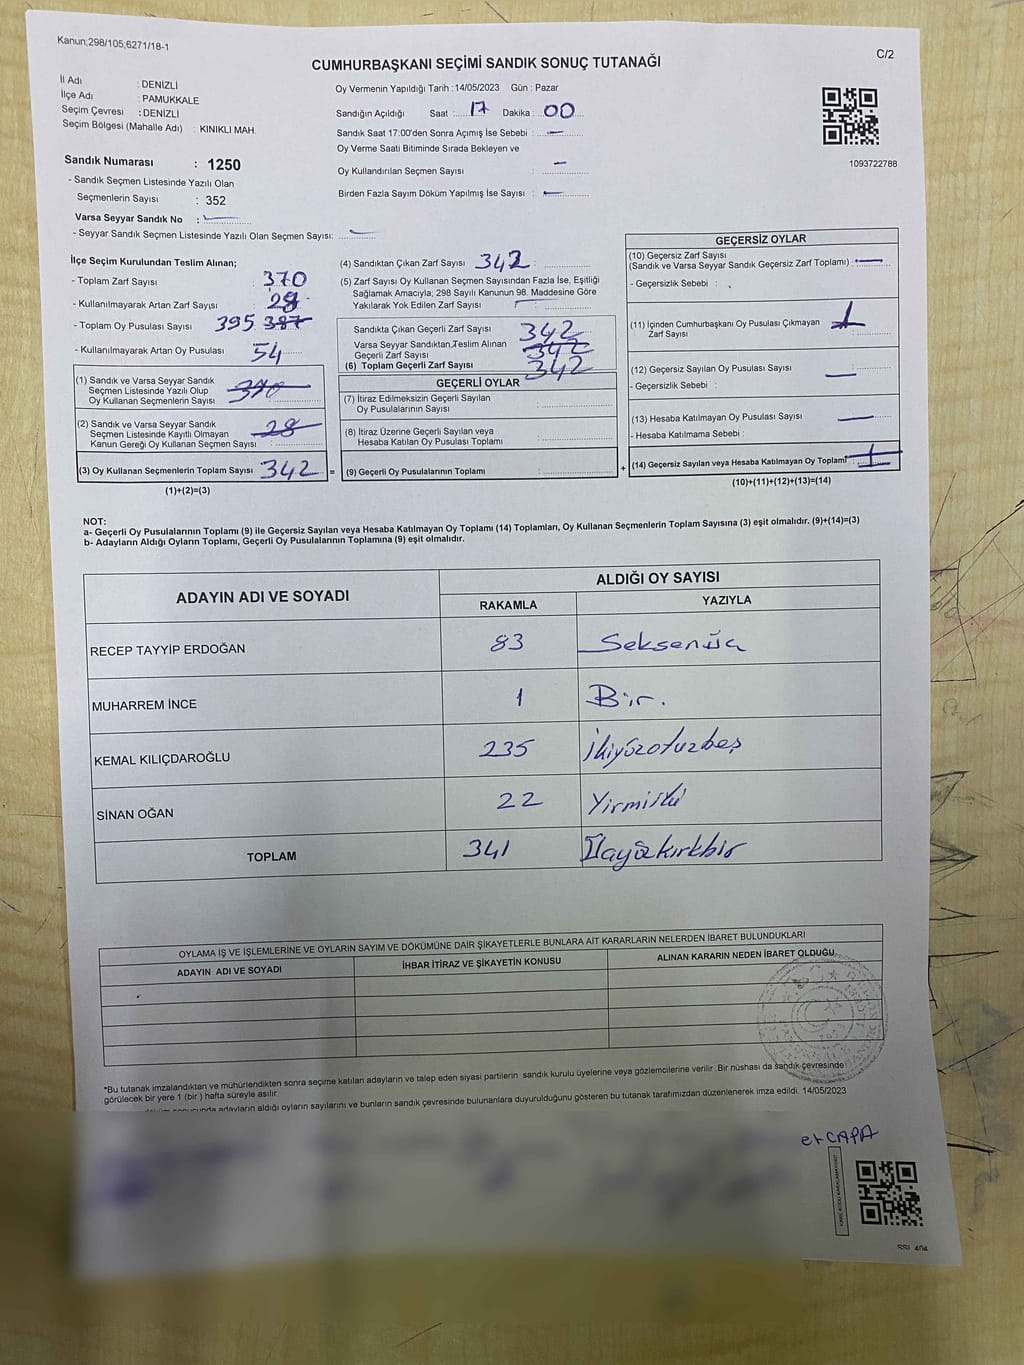 Kanun;298/105,6271/18-1
C/2
CUMHURBAŞKANI SEÇİMİ SANDIK SONUÇ TUTANAĞI
İl Adı : DENİZLİ
İlçe Adı : PAMUKKALE
Seçim Çevresi : DENİZLİ
Seçim Bölgesi (Mahalle Adı) : KINIKLI MAH.
Sandık Numarası : 1250
- Sandık Seçmen Listesinde Yazılı Olan
Seçmenlerin Sayısı : 352
Varsa Seyyar Sandık No :
- Seyyar Sandık Seçmen Listesinde Yazılı Olan Seçmen Sayısı:
Oy Vermenin Yapıldığı Tarih : 14/05/2023 Gün : Pazar
Sandığın Açıldığı Saat : 17 Dakika : 00
Sandık Saat 17:00'den Sonra Açımış İse Sebebi : —
Oy Verme Saati Bitiminde Sırada Bekleyen ve
Oy Kullandırılan Seçmen Sayısı : —
Birden Fazla Sayım Döküm Yapılmış İse Sayısı : —
1093722788
İlçe Seçim Kurulundan Teslim Alınan;
- Toplam Zarf Sayısı : 370
- Kullanılmayarak Artan Zarf Sayısı : 28
- Toplam Oy Pusulası Sayısı 395 387
- Kullanılmayarak Artan Oy Pusulası 54
(1) Sandık ve Varsa Seyyar Sandık
Seçmen Listesinde Yazılı Olup
Oy Kullanan Seçmenlerin Sayısı : 370
(2) Sandık ve Varsa Seyyar Sandık
Seçmen Listesinde Kayıtlı Olmayan
Kanun Gereği Oy Kullanan Seçmen Sayısı : 28
(3) Oy Kullanan Seçmenlerin Toplam Sayısı 342 =
(1)+(2)=(3)
(4) Sandıktan Çıkan Zarf Sayısı 342
(5) Zarf Sayısı Oy Kullanan Seçmen Sayısından Fazla İse, Eşitliği
Sağlamak Amacıyla; 298 Sayılı Kanunun 98. Maddesine Göre
Yakılarak Yok Edilen Zarf Sayısı :
Sandıkta Çıkan Geçerli Zarf Sayısı 342
Varsa Seyyar Sandıktan Teslim Alınan
Geçerli Zarf Sayısı 342
(6) Toplam Geçerli Zarf Sayısı 342
GEÇERLİ OYLAR
(7) İtiraz Edilmeksizin Geçerli Sayılan
Oy Pusulalarının Sayısı :
(8) İtiraz Üzerine Geçerli Sayılan veya
Hesaba Katılan Oy Pusulası Toplamı :
(9) Geçerli Oy Pusulalarının Toplamı : +
GEÇERSİZ OYLAR
(10) Geçersiz Zarf Sayısı
(Sandık ve Varsa Seyyar Sandık Geçersiz Zarf Toplamı) : —
- Geçersizlik Sebebi :
(11) İçinden Cumhurbaşkanı Oy Pusulası Çıkmayan
Zarf Sayısı : 1
(12) Geçersiz Sayılan Oy Pusulası Sayısı —
- Geçersizlik Sebebi :
(13) Hesaba Katılmayan Oy Pusulası Sayısı —
- Hesaba Katılmama Sebebi :
(14) Geçersiz Sayılan veya Hesaba Katılmayan Oy Toplamı : 1
(10)+(11)+(12)+(13)=(14)
NOT:
a- Geçerli Oy Pusulalarının Toplamı (9) ile Geçersiz Sayılan veya Hesaba Katılmayan Oy Toplamı (14) Toplamları, Oy Kullanan Seçmenlerin Toplam Sayısına (3) eşit olmalıdır. (9)+(14)=(3)
b- Adayların Aldığı Oyların Toplamı, Geçerli Oy Pusulalarının Toplamına (9) eşit olmalıdır.
ADAYIN ADI VE SOYADI ALDIĞI OY SAYISI
RAKAMLA YAZIYLA
RECEP TAYYİP ERDOĞAN 83 Seksenüç
MUHARREM İNCE 1 Bir.
KEMAL KILIÇDAROĞLU 235 İkiyüzotuzbeş
SİNAN OĞAN 22 Yirmiiki
TOPLAM 341 Üçyüzkırkbir
OYLAMA İŞ VE İŞLEMLERİNE VE OYLARIN SAYIM VE DÖKÜMÜNE DAİR ŞİKAYETLERLE BUNLARA AİT KARARLARIN NELERDEN İBARET BULUNDUKLARI
ADAYIN ADI VE SOYADI İHBAR İTİRAZ VE ŞİKAYETİN KONUSU ALINAN KARARIN NEDEN İBARET OLDUĞU
*Bu tutanak imzalandıktan ve mühürlendikten sonra seçime katılan adayların ve talep eden siyasi partilerin sandık kurulu üyelerine veya gözlemcilerine verilir. Bir nüshası da sandık çevresinde
görülecek bir yere 1 (bir) hafta süreyle asılır.
adayların aldığı oyların sayılarını ve bunların sandık çevresinde bulunanlara duyurulduğunu gösteren bu tutanak tarafımızdan düzenlenerek imza edildi. 14/05/2023